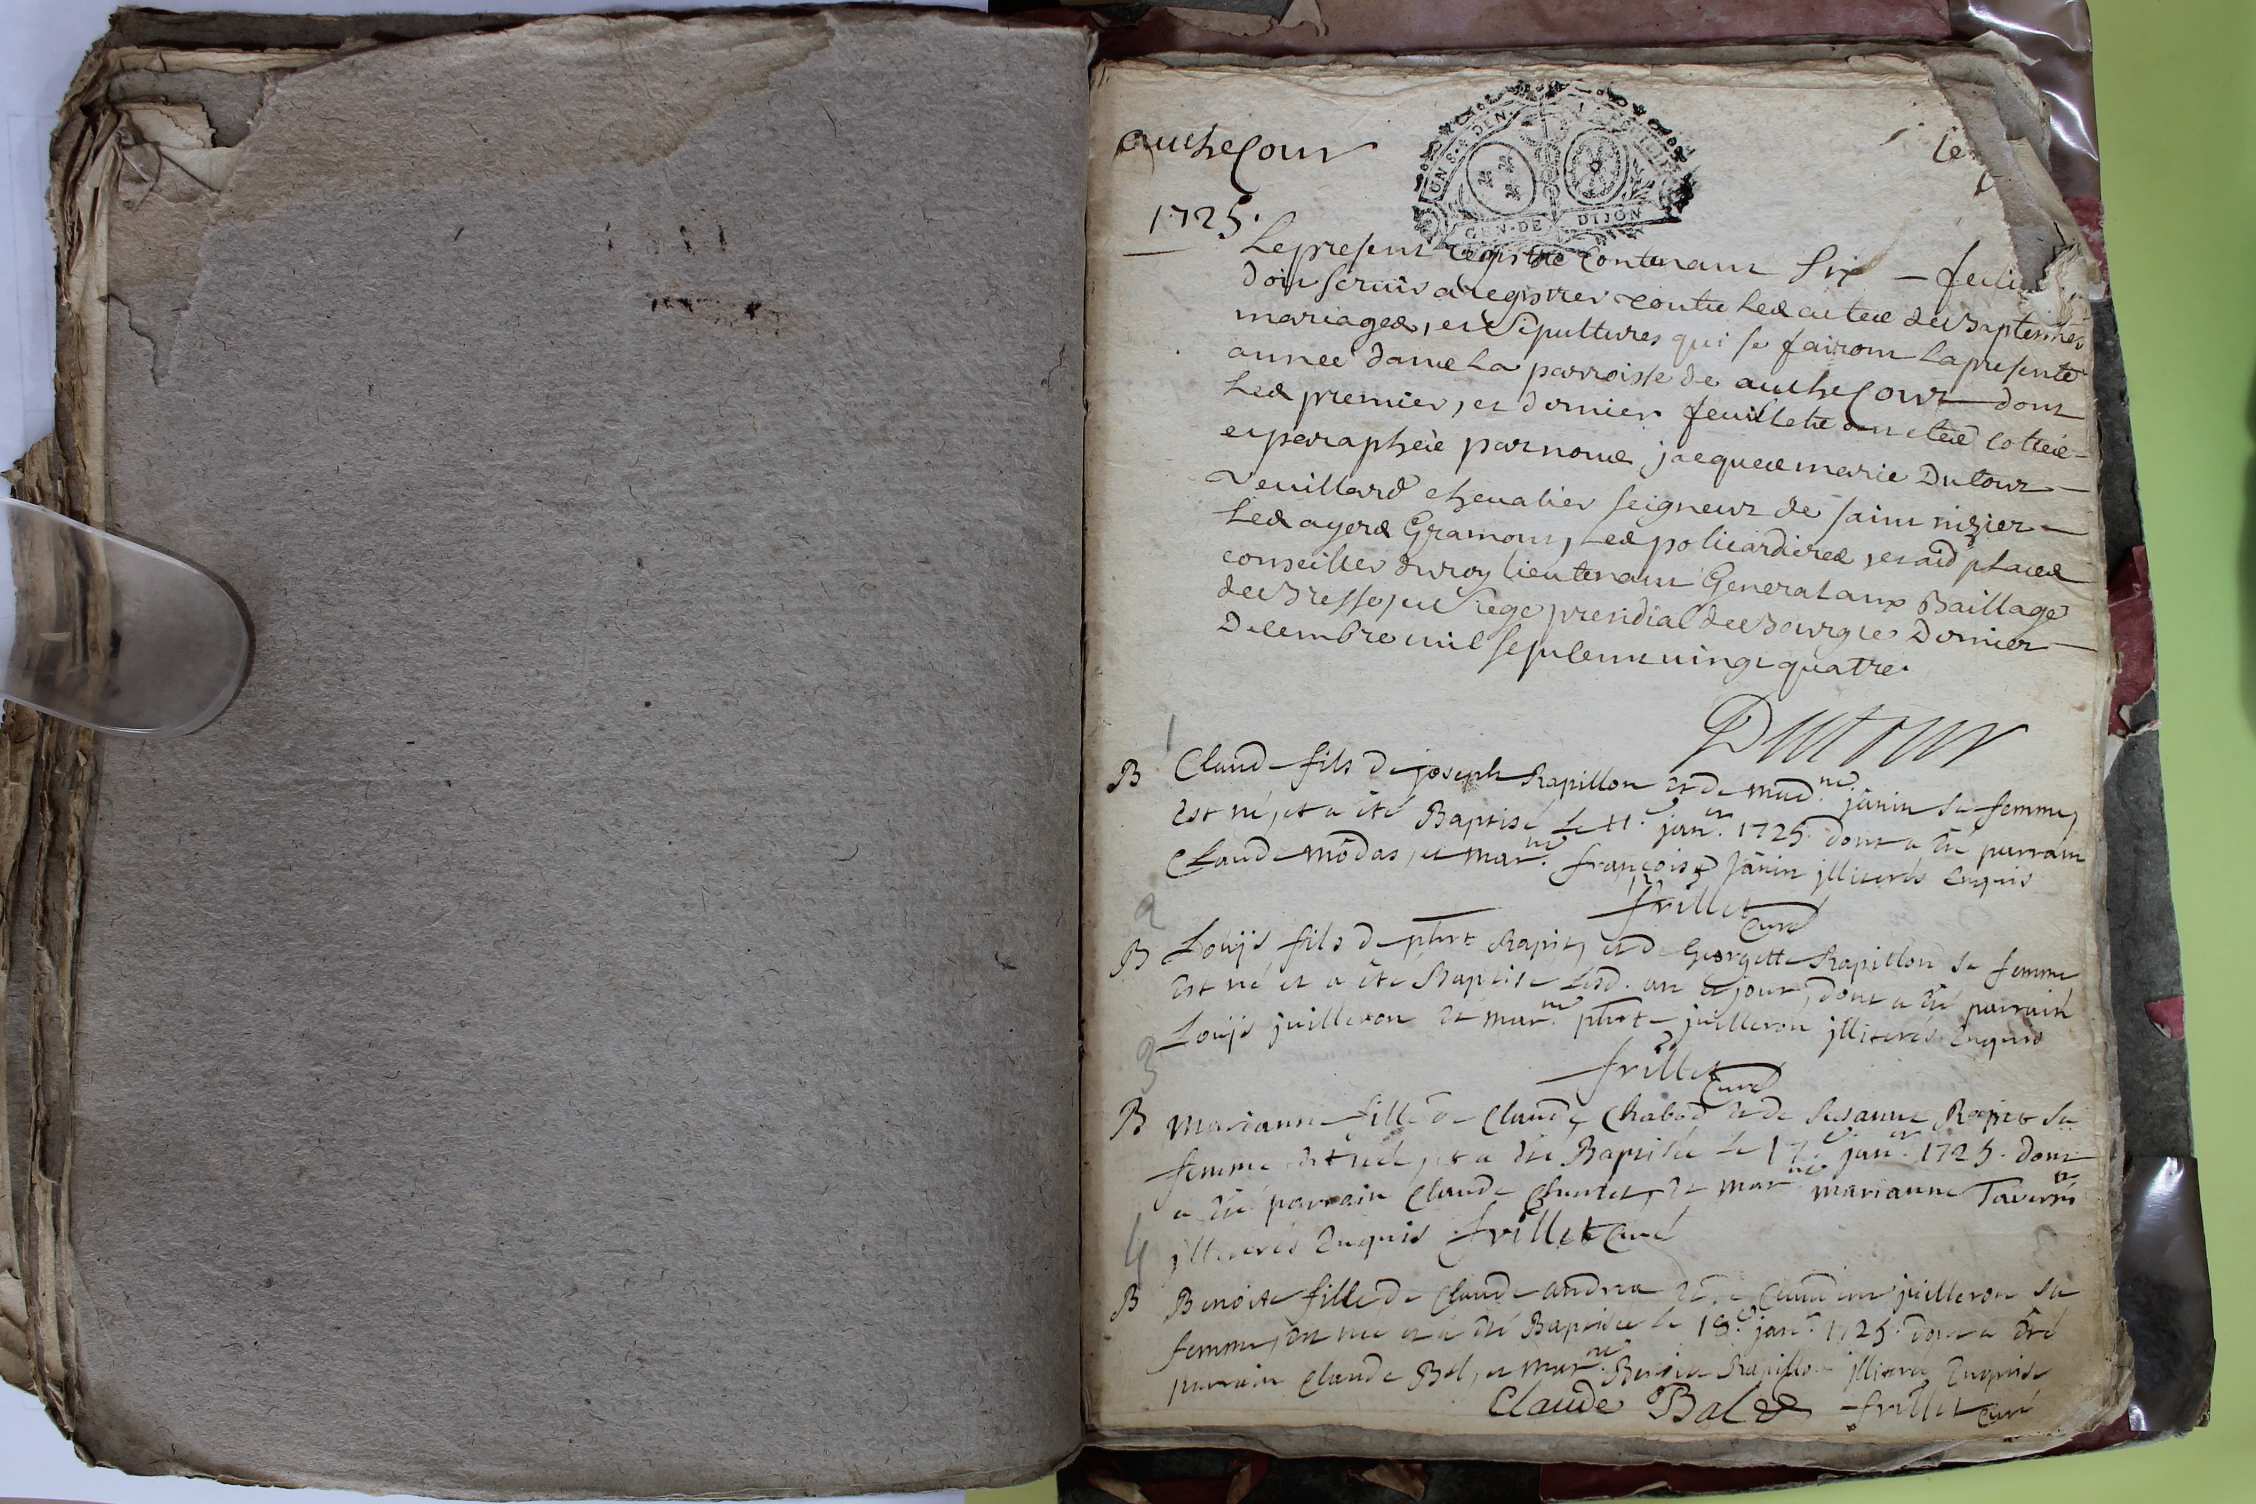 autheCour
1725.
GEN·DE DIJON
Le present registre Contenant Six — feuil
doit servir a registrer toutte Les actes des Baptemes
mariages, et Sepultures qui se fairont La presente
année dans La parroisse de autheCour dont
Les premier, et dernier feuillets ont eté cottée
et paraphée par nous jacques marie Dutour
Veuillard chevalier seigneur de saint nizier
conseiller du roy lieutenant General aux Baillage
de Bresse, et siege presidial de Bourg ce Dernier
Decembre mil sept cent vingt quatre.
Dutour
1
B Claude fils de joseph Rapillon et de mad.ne janin sa femme,
est né, et a été Baptisé Le 11.e jan.er 1725. dont a été parrain
Claude , et mar.ne françoise Janin jlliterés Enquis
frillet Curé
2
B Loüis fils de phrt Rapin, et de Georgette Rapillon sa femme
est né et a été Baptisé Lesd. an et jour, dont a été parrain
Loüis juilleron et mar.ne phrte juilleron jlliterés Enquis
frillet Curé
3
B Marianne fille de Claude Chabod et de Susanne Rapin sa
femme est née, et a été Baptisée Le 17.e jan.er 1725. dont
a été parrain Claude et mar.ne marianne
jlliterés Enquis frillet Curé
4
B Benoite fille de Claude andrea et de juilleron sa
femme, est née et a été Baptisée le 18.e jan.r 1725. dont a été
parrain Claude Bal, et mar.ne Rapillon Enquise
Claude Bal frillet Curé